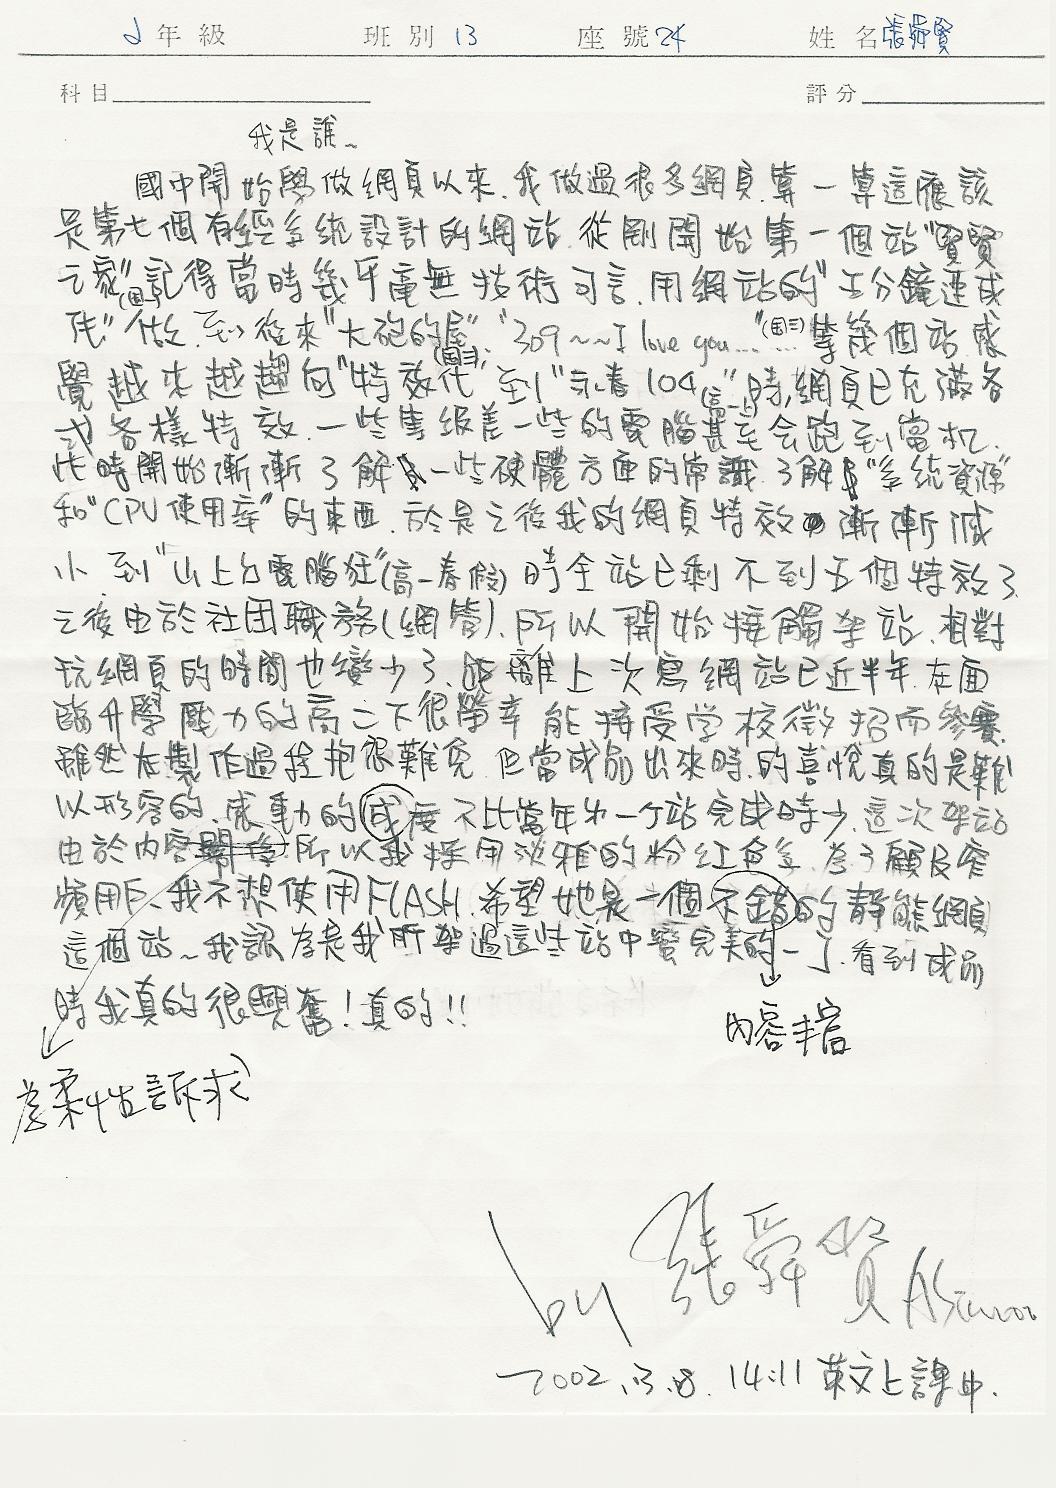 2 年級 班別 13 座號 24 姓名 張舜賢
科目 評分
我是誰~
國中開始學做網頁以來,我做過很多網頁,算一算這應該
是第七個有經系統設計的網站.從剛開始第一個站"賢賢
之家"(國一)記得當時幾乎毫無技術可言.用網站的"五分鐘速成
法"做.到後來"大砲的屋"(國三).'309~~I love you......"(國三)等幾個站.感
覺越來越趨向"特效化"到"永春104"(高一上)時,網頁已充滿各
式各樣特效.一些等級差一些的電腦甚至会跑到當机.
此時開始漸漸了解一些硬體方面的常識.了解"系統資源"
和"CPU使用率"的東西.於是之後我的網頁特效漸漸減
小.到"山上ㄉ電腦狂"(高一春假)時全站已剩不到五個特效了.
之後由於社团職務(網管).所以開始接觸架站.相對
玩網頁的時間也變少了.距離上次寫網站已近半年.在面
臨升學壓力的高二下很榮幸能接受学校徵招而參賽.
雖然在製作過程抱很難免.但當成品出來時.的喜悅真的是難
以形容的.感動的成度不比當年ㄉ一个站完成時少.這次架站
由於內容所以我採用淡雅的粉紅色系.為了顧及窄
頻用戶、我不想使用FLASH.希望她是一個不錯的靜態網頁
這個站~我認為是我所架過這些站中蠻完美的一了.看到成品
時我真的很興奮!真的!!
內容丰富
為柔性訴求
by 張舜賢
2002.3.8. 14:11 英文上課中.